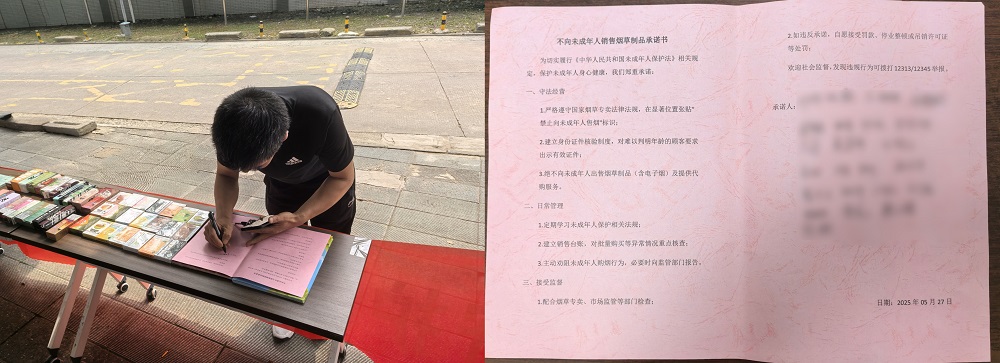 不向未成年人销售烟草制品承诺书
为切实履行《中华人民共和国未成年人保护法》相关规
定，保护未成年人身心健康，我们郑重承诺：
一、守法经营
1.严格遵守国家烟草专卖法律法规，在显著位置张贴“
禁止向未成年人售烟”标识；
2.建立身份证件核验制度，对难以判明年龄的顾客要求
出示有效证件；
3.绝不向未成年人出售烟草制品（含电子烟）及提供代
购服务。
二、日常管理
1.定期学习未成年人保护相关法规；
2.建立销售台账，对批量购买等异常情况重点核查；
3.主动劝阻未成年人购烟行为，必要时向监管部门报告。
三、接受监督
1.配合烟草专卖、市场监管等部门检查；
2.如违反承诺，自愿接受罚款、停业整顿或吊销许可证
等处罚；
欢迎社会监督，发现违规行为可拨打 12313/12345 举报。
承诺人：
日期：2025 年 05 月 27 日